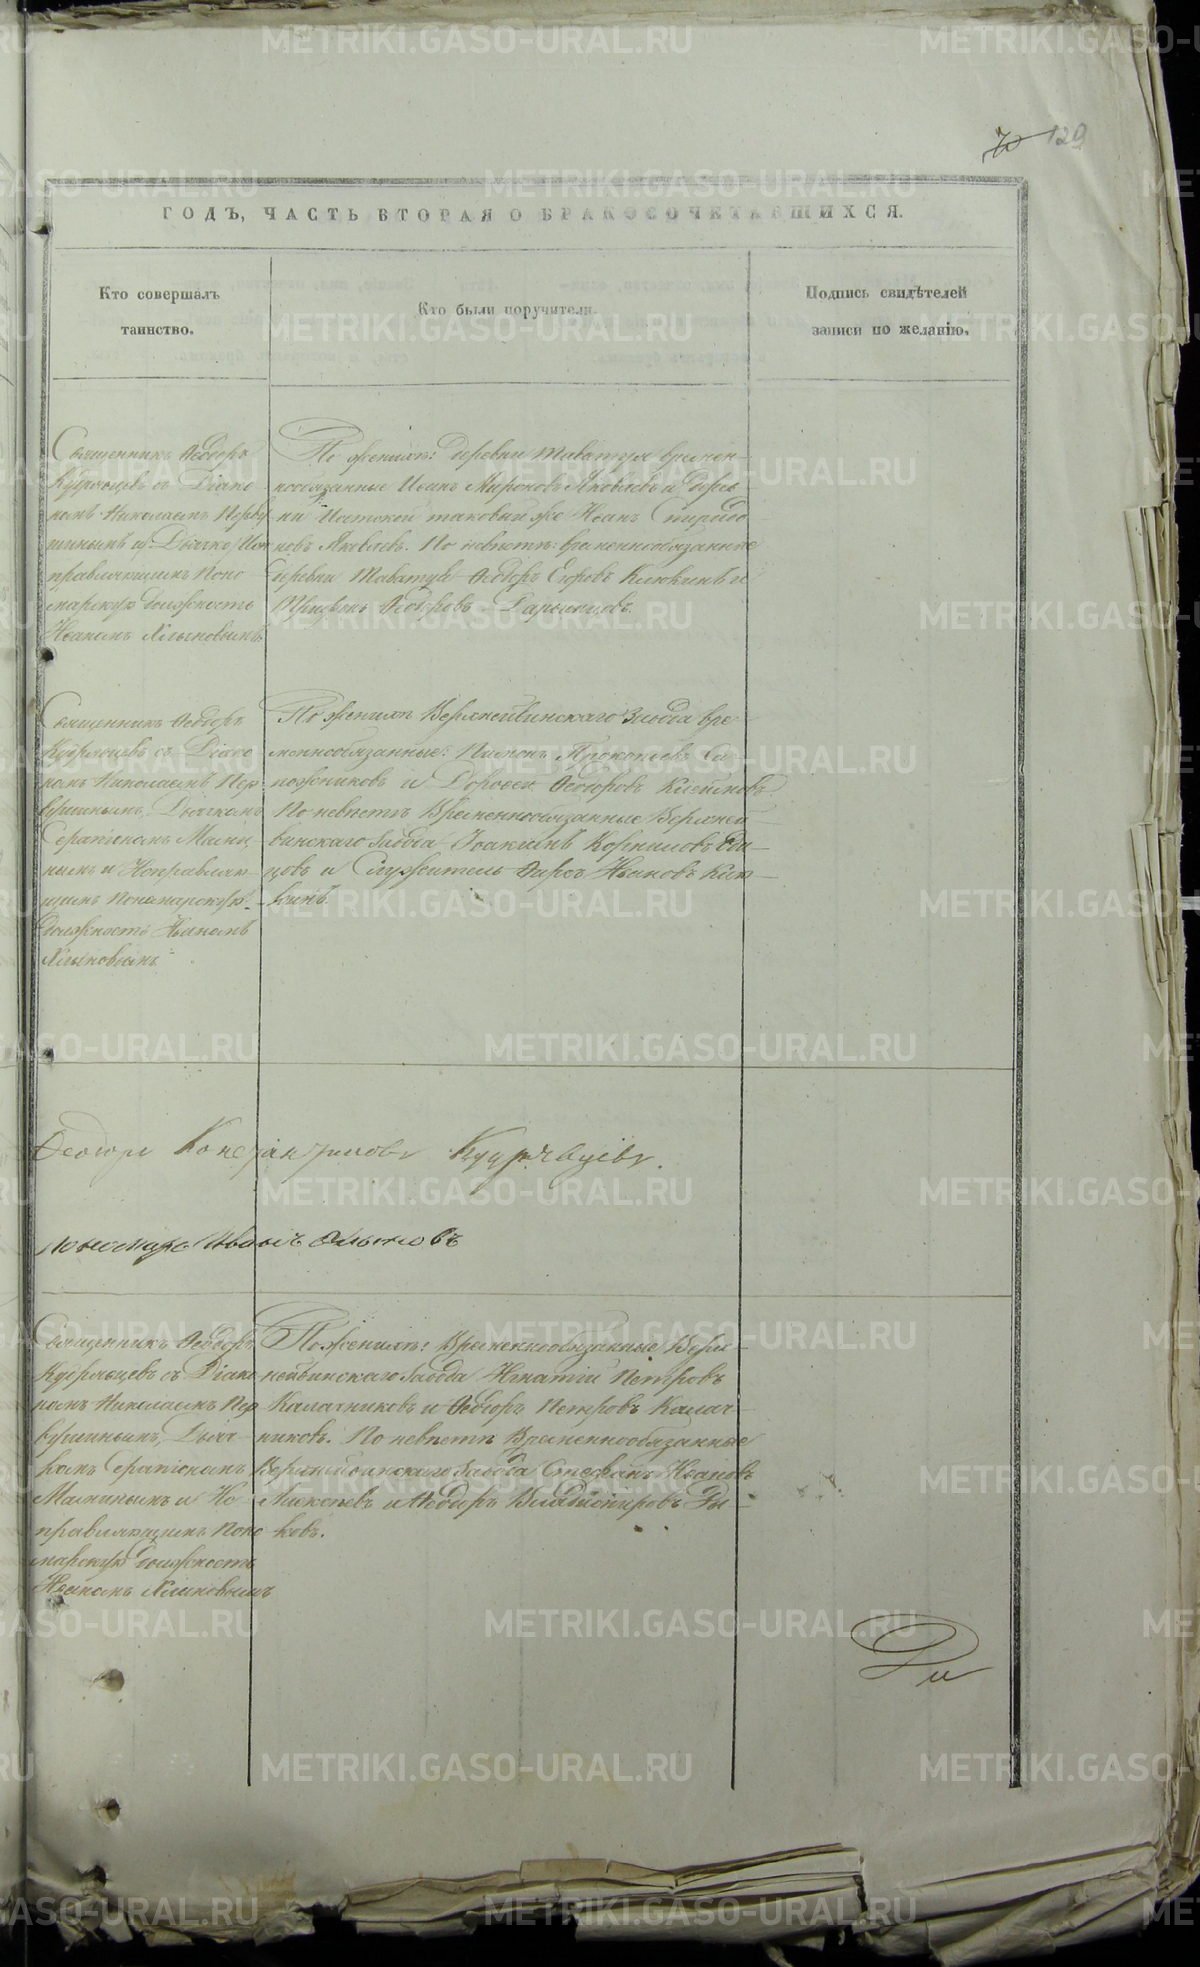 70 129
ГОДЪ, ЧАСТЬ ВТОРАЯ О БРАКОСОЧЕТАВШИХСЯ.
Кто совершалъ
таинство.
Кто были поручители.
Подпись свидѣтелей
записи по желанію.
Священникъ Ѳеодоръ
Кудрявцевъ съ Діако-
номъ Николаемъ Перву-
шинымъ и Дьячко
правляющимъ Поно-
марскую должность
Иваномъ Хлыновымъ
По женихѣ: деревни Таватуя времен-
нообязанные Иванъ Мироновъ Яковлевъ и дерев-
ни таковый же Иванъ Спиридо-
новъ Яковлевъ. По невѣстѣ: временнообязанные
деревни Таватуя Ѳеодоръ Егоровъ Клюкинъ и
Ѳеодоровъ
Священникъ Ѳеодоръ
Кудрявцевъ съ Діако-
номъ Николаемъ Пер-
вушинымъ, Дьячкомъ
Серапіономъ Мамин-
нымъ и Исправляю-
щимъ Пономарскую
должность Иваномъ
Хлыновымъ
По женихѣ Верхнейвинскаго Завода вре-
меннообязанные: Пименъ Прокопьевъ Са-
пожниковъ и Дорофей Ѳеодоровъ
По невѣстѣ Временнообязанные Верхней-
винскаго Завода Іоакимъ Корниловъ
цовъ и Служитель Фирсъ Ивановъ Клю-
кинъ.
Ѳеодоръ Константиновъ Кудрявцевъ.
Пономарь Иванъ Хлыновъ
Священникъ Ѳеодоръ
Кудрявцевъ съ Діако-
номъ Николаемъ Пер-
вушинымъ, Дьяч-
комъ Серапіономъ
Маминымъ и Ис-
правляющимъ Поно-
марскую должность
Иваномъ Хлыновымъ
По женихѣ: Временнообязанные Верх-
нейвинскаго Завода Игнатій Петровъ
Калачниковъ и Ѳеодоръ Петровъ Калач-
никовъ. По невѣстѣ Временнообязанные
Верхнейвинскаго Завода Стефанъ Ивановъ
Алексѣевъ и Ѳеодоръ Владиміровъ Ры-
ковъ.
METRIKI.GASO-URAL.RU